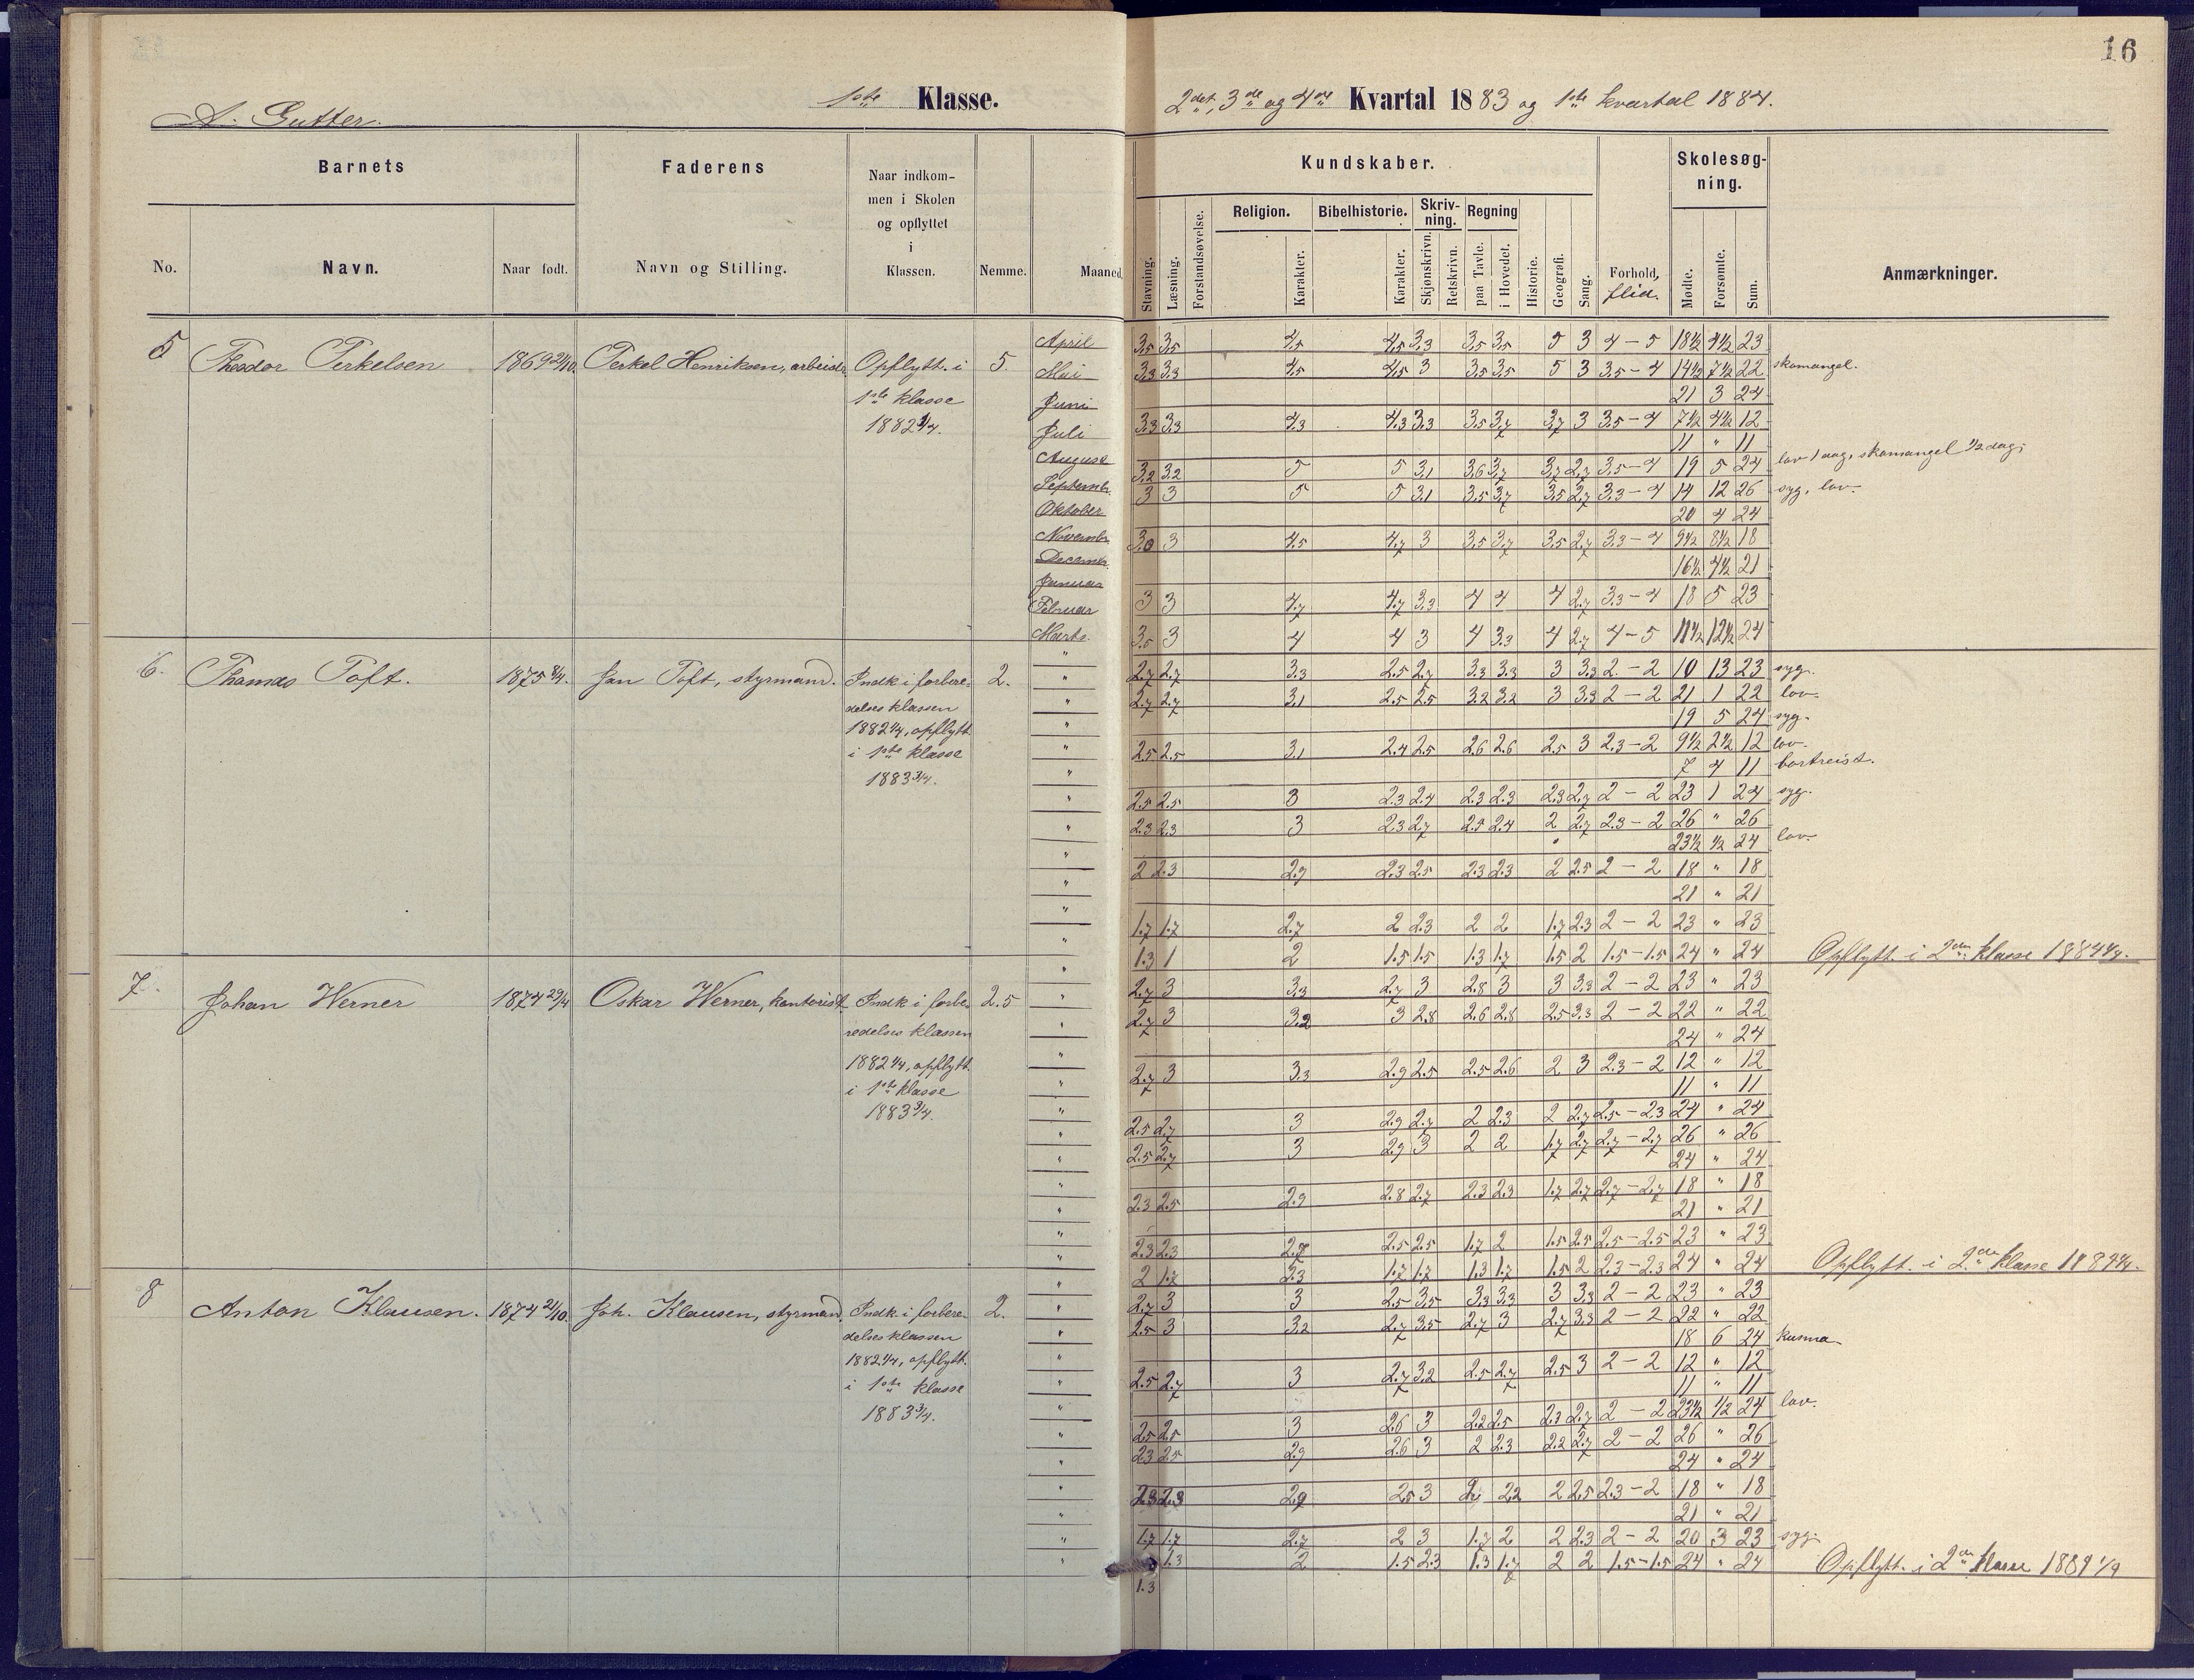 16
1ste Klasse.
2det, 3de og 4de Kvartal 1883 og 1ste kvartal 1884.
A. Gutter.
Barnets
Faderens
Naar indkom-
men i Skolen
og opflyttet
i
Klassen.
Nemme.
Maaned.
No.
Navn.
Naar født.
Navn og Stilling.
Kundskaber.
Skolesøg-
ning.
Religion.
Bibelhistorie.
Skriv-
ning.
Regning
Stavning.
Læsning.
Forstandsøvelse.
Karakter.
Karakter.
Skjønskrivn.
Retskrivn.
paa Tavle.
i Hovedet.
Historie.
Geografi.
Sang.
Forhold,
flid.
Mødte.
Forsømte.
Sum.
Anmærkninger.
5 Theodor Terkelsen 1869 21/10 Terkel Henriksen, arbeider. Opflytt. i 5.
1ste klasse
1882
April 3,5 3,5 4,5 4,5 3,3 3,5 3,5 5 3 4-5 18½ 4½ 23
Mai 3,3 3,3 4,5 4,5 3 3,5 3,5 5 3 3,5-4 14½ 7½ 22 skomangel.
Juni 21 3 24
Juli 3,3 3,3 4,3 4,3 3,3 3,5 3,7 3,7 3 3,5-4 7½ 4½ 12
August 11 " 11
Septembr. 3,2 3,2 5 5 3,1 3,6 3,7 3,7 2,7 3,5-4 19 5 24 lov 1 dag, skomangel ½ dag;
Oktober 3 3 5 5 3,1 3,5 3,7 3,5 2,7 3,3-4 14 12 26 syg, lov.
Novembr. 20 4 24
Decembr. 3,0 3 4,5 4,7 3 3,5 3,7 3,5 2,7 3,3-4 9½ 8½ 18
Januar 16½ 4½ 21
Februar 3 3 4,7 4,7 3,3 4 4 4 2,7 3,3-4 18 5 23
Marts. 3,0 3 4 4 3 4 3,3 4 2,7 4-5 11½ 12½ 24
6. Thomas Toft. 1875 8/4. Jan Toft, styrmand. Indk. i forbere- 2.
delses klassen
1882 1/4, opflytt.
i 1ste klasse
1883 3/4.
2,7 2,7 3,3 2,5 2,7 3,3 3,3 3 3,3 2-2 10 13 23 syg.
2,7 2,7 3,1 2,5 2,5 3,2 3,2 3 3,3 2-2 21 1 22 lov.
19 5 24 syg.
2,5 2,5 3,1 2,4 2,5 2,6 2,6 2,5 3 2,3-2 9½ 2½ 12 lov.
7 4 11 bortreist.
2,5 2,5 3 2,3 2,4 2,3 2,3 2,3 2,7 2-2 23 1 24 syg.
2,3 2,3 3 2,3 2,7 2,5 2,4 2 2,7 2,3-2 26 " 26
23½ ½ 24 lov.
2 2,3 2,9 2,3 2,5 2,3 2,3 2 2,5 2-2 18 " 18
21 " 21
1,7 1,7 2,7 2 2,3 2 2 1,7 2,3 2-2 23 " 23
1,3 1 2 1,5 1,5 1,3 1,7 1,5 2 1,5-1,5 24 " 24 Opflytt. i 2den klasse 1884 1/4.
7. Johan Werner 1874 29/4 Oskar Werner, kontorist Indk. i forbe- 2.5
redelses klassen
1882 1/4, opflytt.
i 1ste klasse
1883 3/4.
2,7 3 3,3 2,7 3 2,8 3 3 3,3 2-2 23 " 23
2,7 3 3,2 3 2,8 2,6 2,8 2,5 3,3 2-2 22 " 22
24 " 24
2,7 3 3,3 2,9 2,5 2,5 2,6 2 3 2,3-2 12 " 12
11 " 11
2,5 2,7 3 2,9 2,7 2 2,3 2 2,7 2,5-2,3 24 " 24
2,5 2,7 3 2,9 3 2 2 1,7 2,7 2,7-2,7 26 " 26
24 " 24
2,3 2,5 2,9 2,8 2,7 2,3 2,3 1,7 2,7 2,7-2,7 18 " 18
21 " 21
2,3 2,3 2,7 2,5 2,5 1,7 2 1,5 2,5 2,5-2,5 23 " 23
2 1,7 2,3 1,7 1,7 1,3 1,7 1,5 2 2,3-2,3 24 " 24 Opflytt. i 2den klasse 1884 1/4.
8 Anton Klausen. 1874 21/10. Joh. Klausen, styrmand. Indk. i forbere- 2.
delses klassen
1882 1/4, opflytt.
i 1ste klasse
1883 3/4.
2,7 3 3 2,5 3,5 3,3 3,3 3 3,3 2-2 23 " 23
2,5 3 3,2 2,7 3,5 2,7 3 2,7 3,3 2-2 22 " 22
18 6 24 kusma
2,5 2,7 3 2,7 3,2 2,5 2,7 2,5 3 2-2 12 " 12
11 " 11
2,5 2,5 3 2,6 3 2,2 2,5 2,3 2,7 2-2 23½ ½ 24 lov.
2,3 2,5 2,9 2,6 3 2 2,3 2,2 2,7 2-2 26 " 26
24 " 24
2,3 2,3 2,9 2,5 3 2,2 2 2,5 2,3-2 18 " 18
21 " 21
1,7 1,7 2,7 2 3 1,7 2 2 2,3 2-2 20 3 23 syg.
1.3 1,3 2 1,5 2,3 1,3 1,7 2 2 1,5-1,5 24 " 24 Opflytt. i 2den klasse 1884